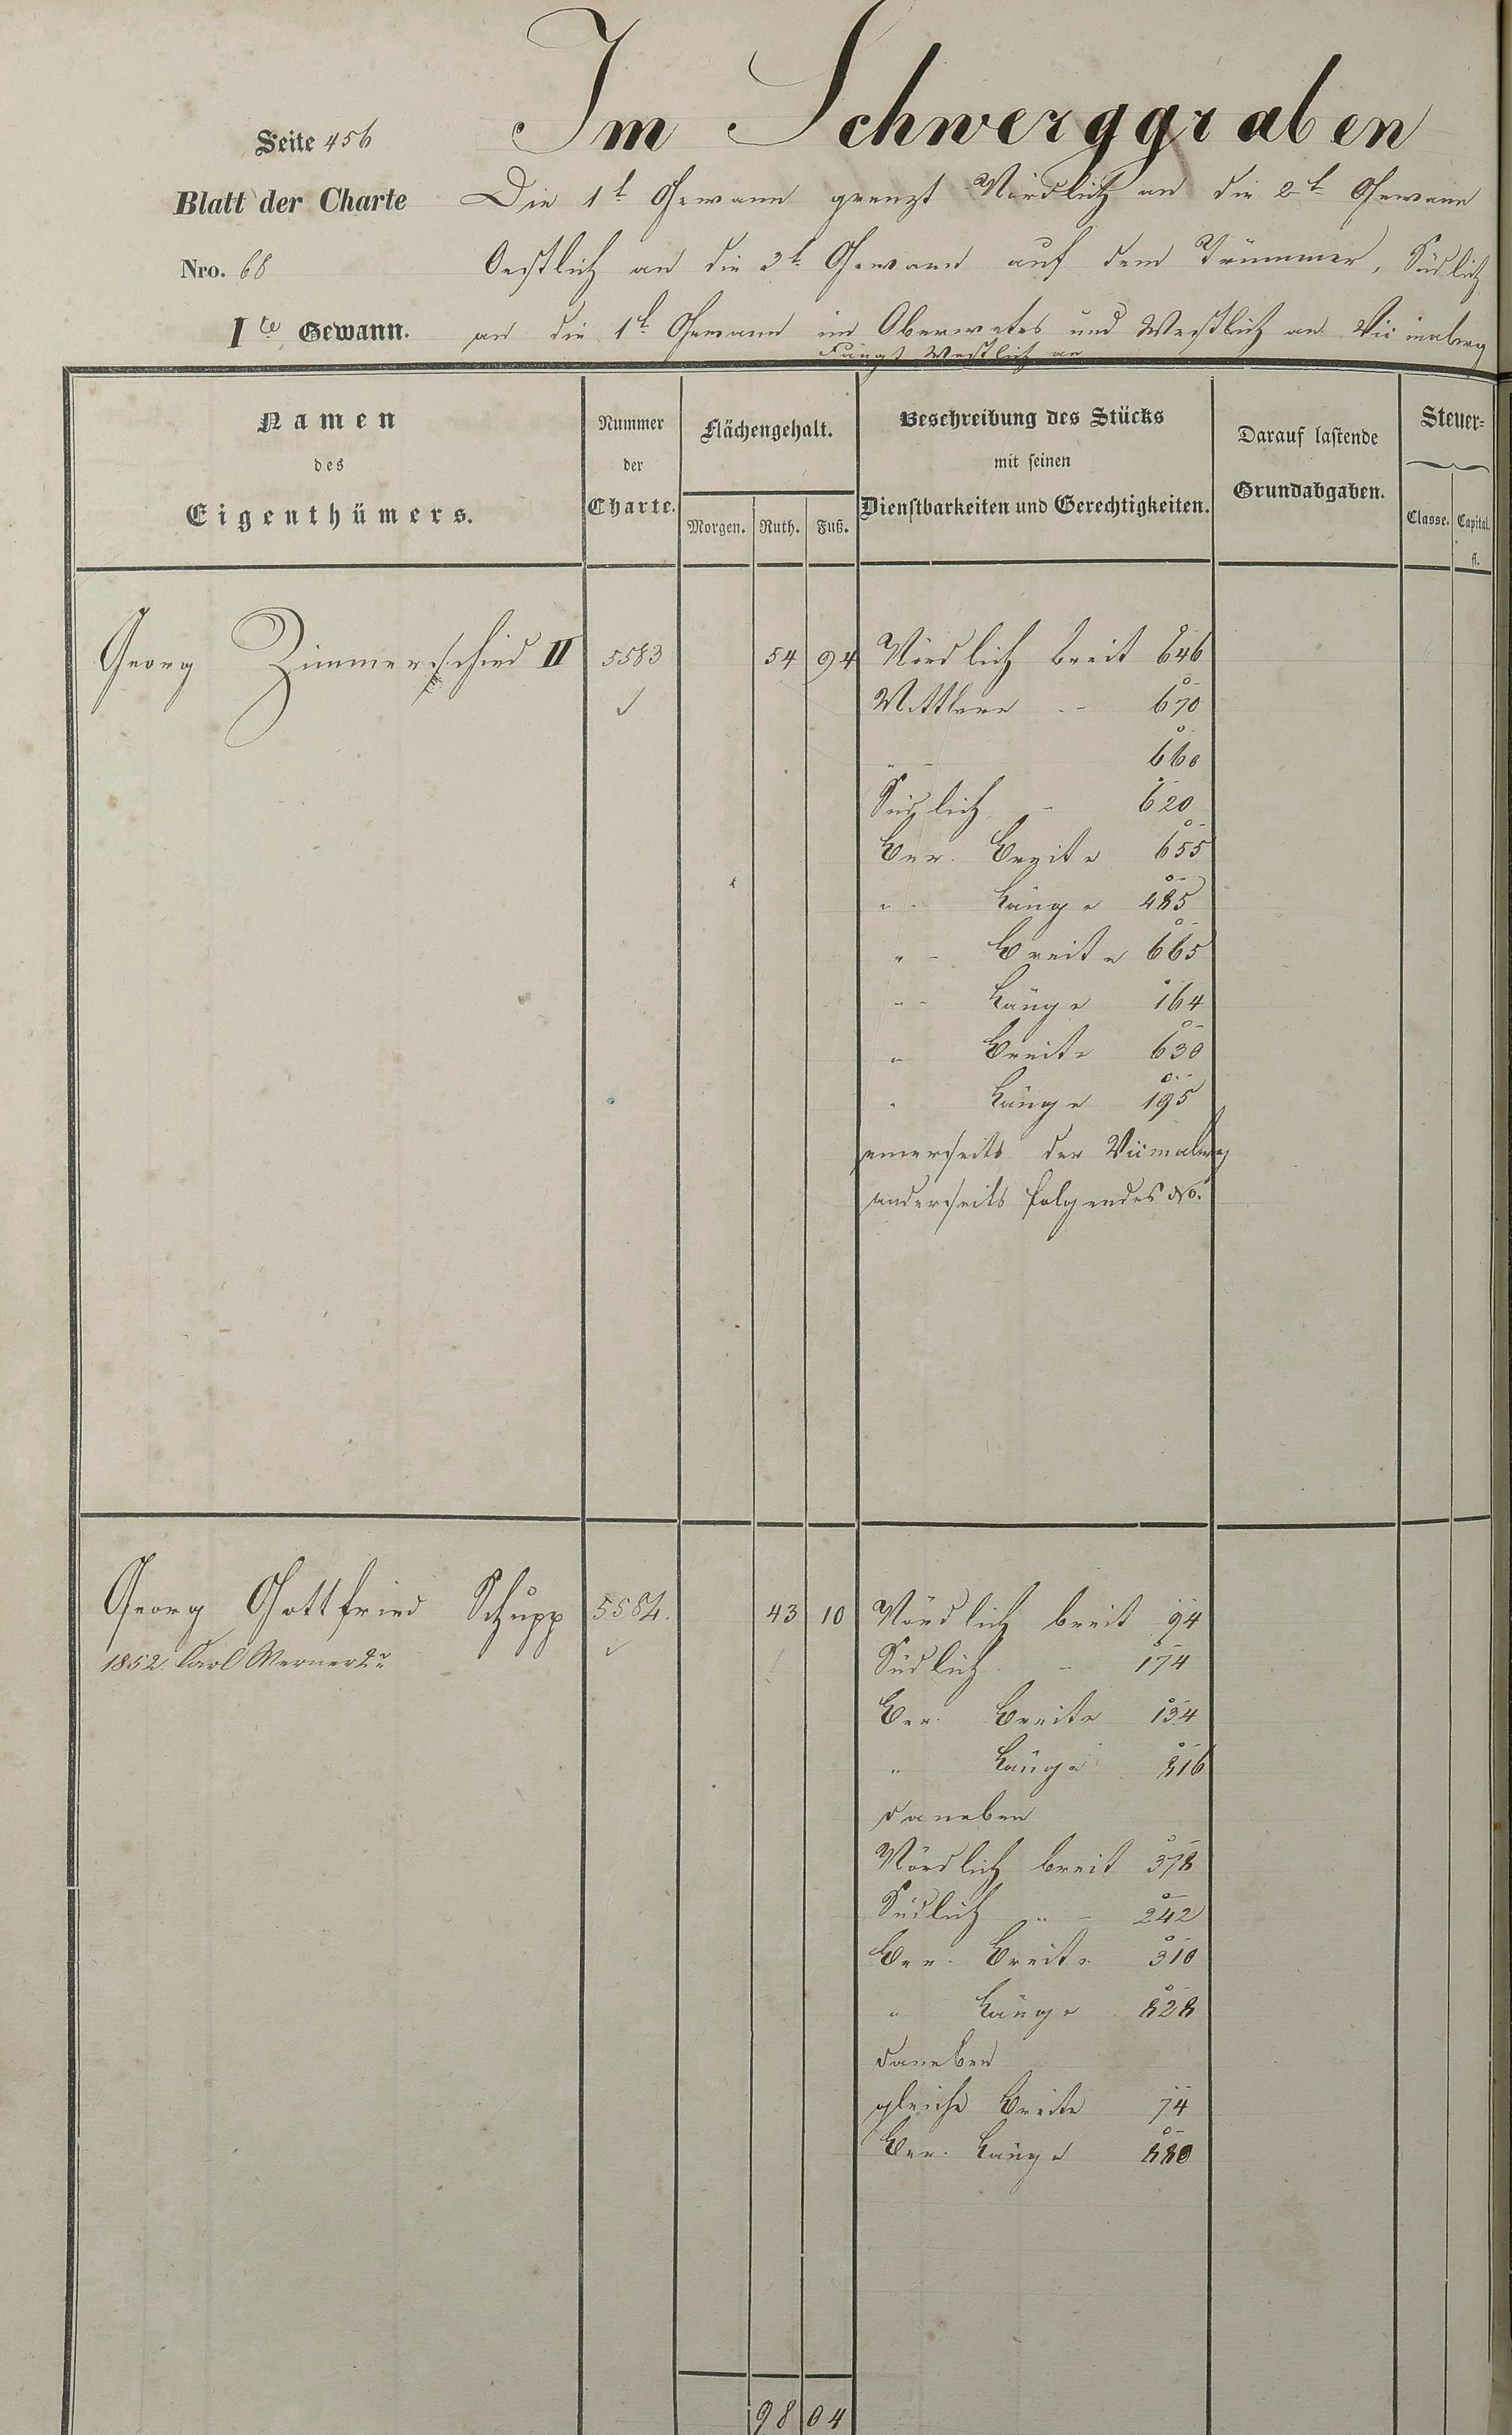 Im Schwerggraben
Seite 456
Blatt der Charte
Nro. 68
Ite Gewann.
Die 1t Gewann grenzt Nördlich an die 2t Gewann
Oestlich an die 3t Gewann auf dem Trümmer, Südlich
an die 1t Gewann im und Westlich an Vicinalweg
Fängt Westlich an
Namen
des
Eigenthümers.
Nummer
der
Charte.
Flächengehalt.
Morgen. Ruth. Fuß.
Beschreibung des Stücks
mit seinen
Dienstbarkeiten und Gerechtigkeiten.
Darauf lastende
Grundabgaben.
Steuer-
Classe. Capital.
fl.
Georg Zimmerschied II 5583 54 94 Nördlich breit 646
Mittlere - 670
" - 660
Südlich - 620
Ber. Breite 655
" Länge 485
" - Breite 665
" - Länge 164
" Breite 630
" Länge 195
einerseits der Vicinalweg
anderseits folgendes No.
Georg Gottfried Schupp 5584. 43 10 Nördlich breit 94
1852. Carl Werner 2r
Südlich - 174
Ber. Breite 134
" Länge 816
daneben
Nördlich breit 378
Südlich " - 242
Ber. Breite 310
" Länge 828
daneben
gleiche Breite 74
Ber. Länge 880
98 04